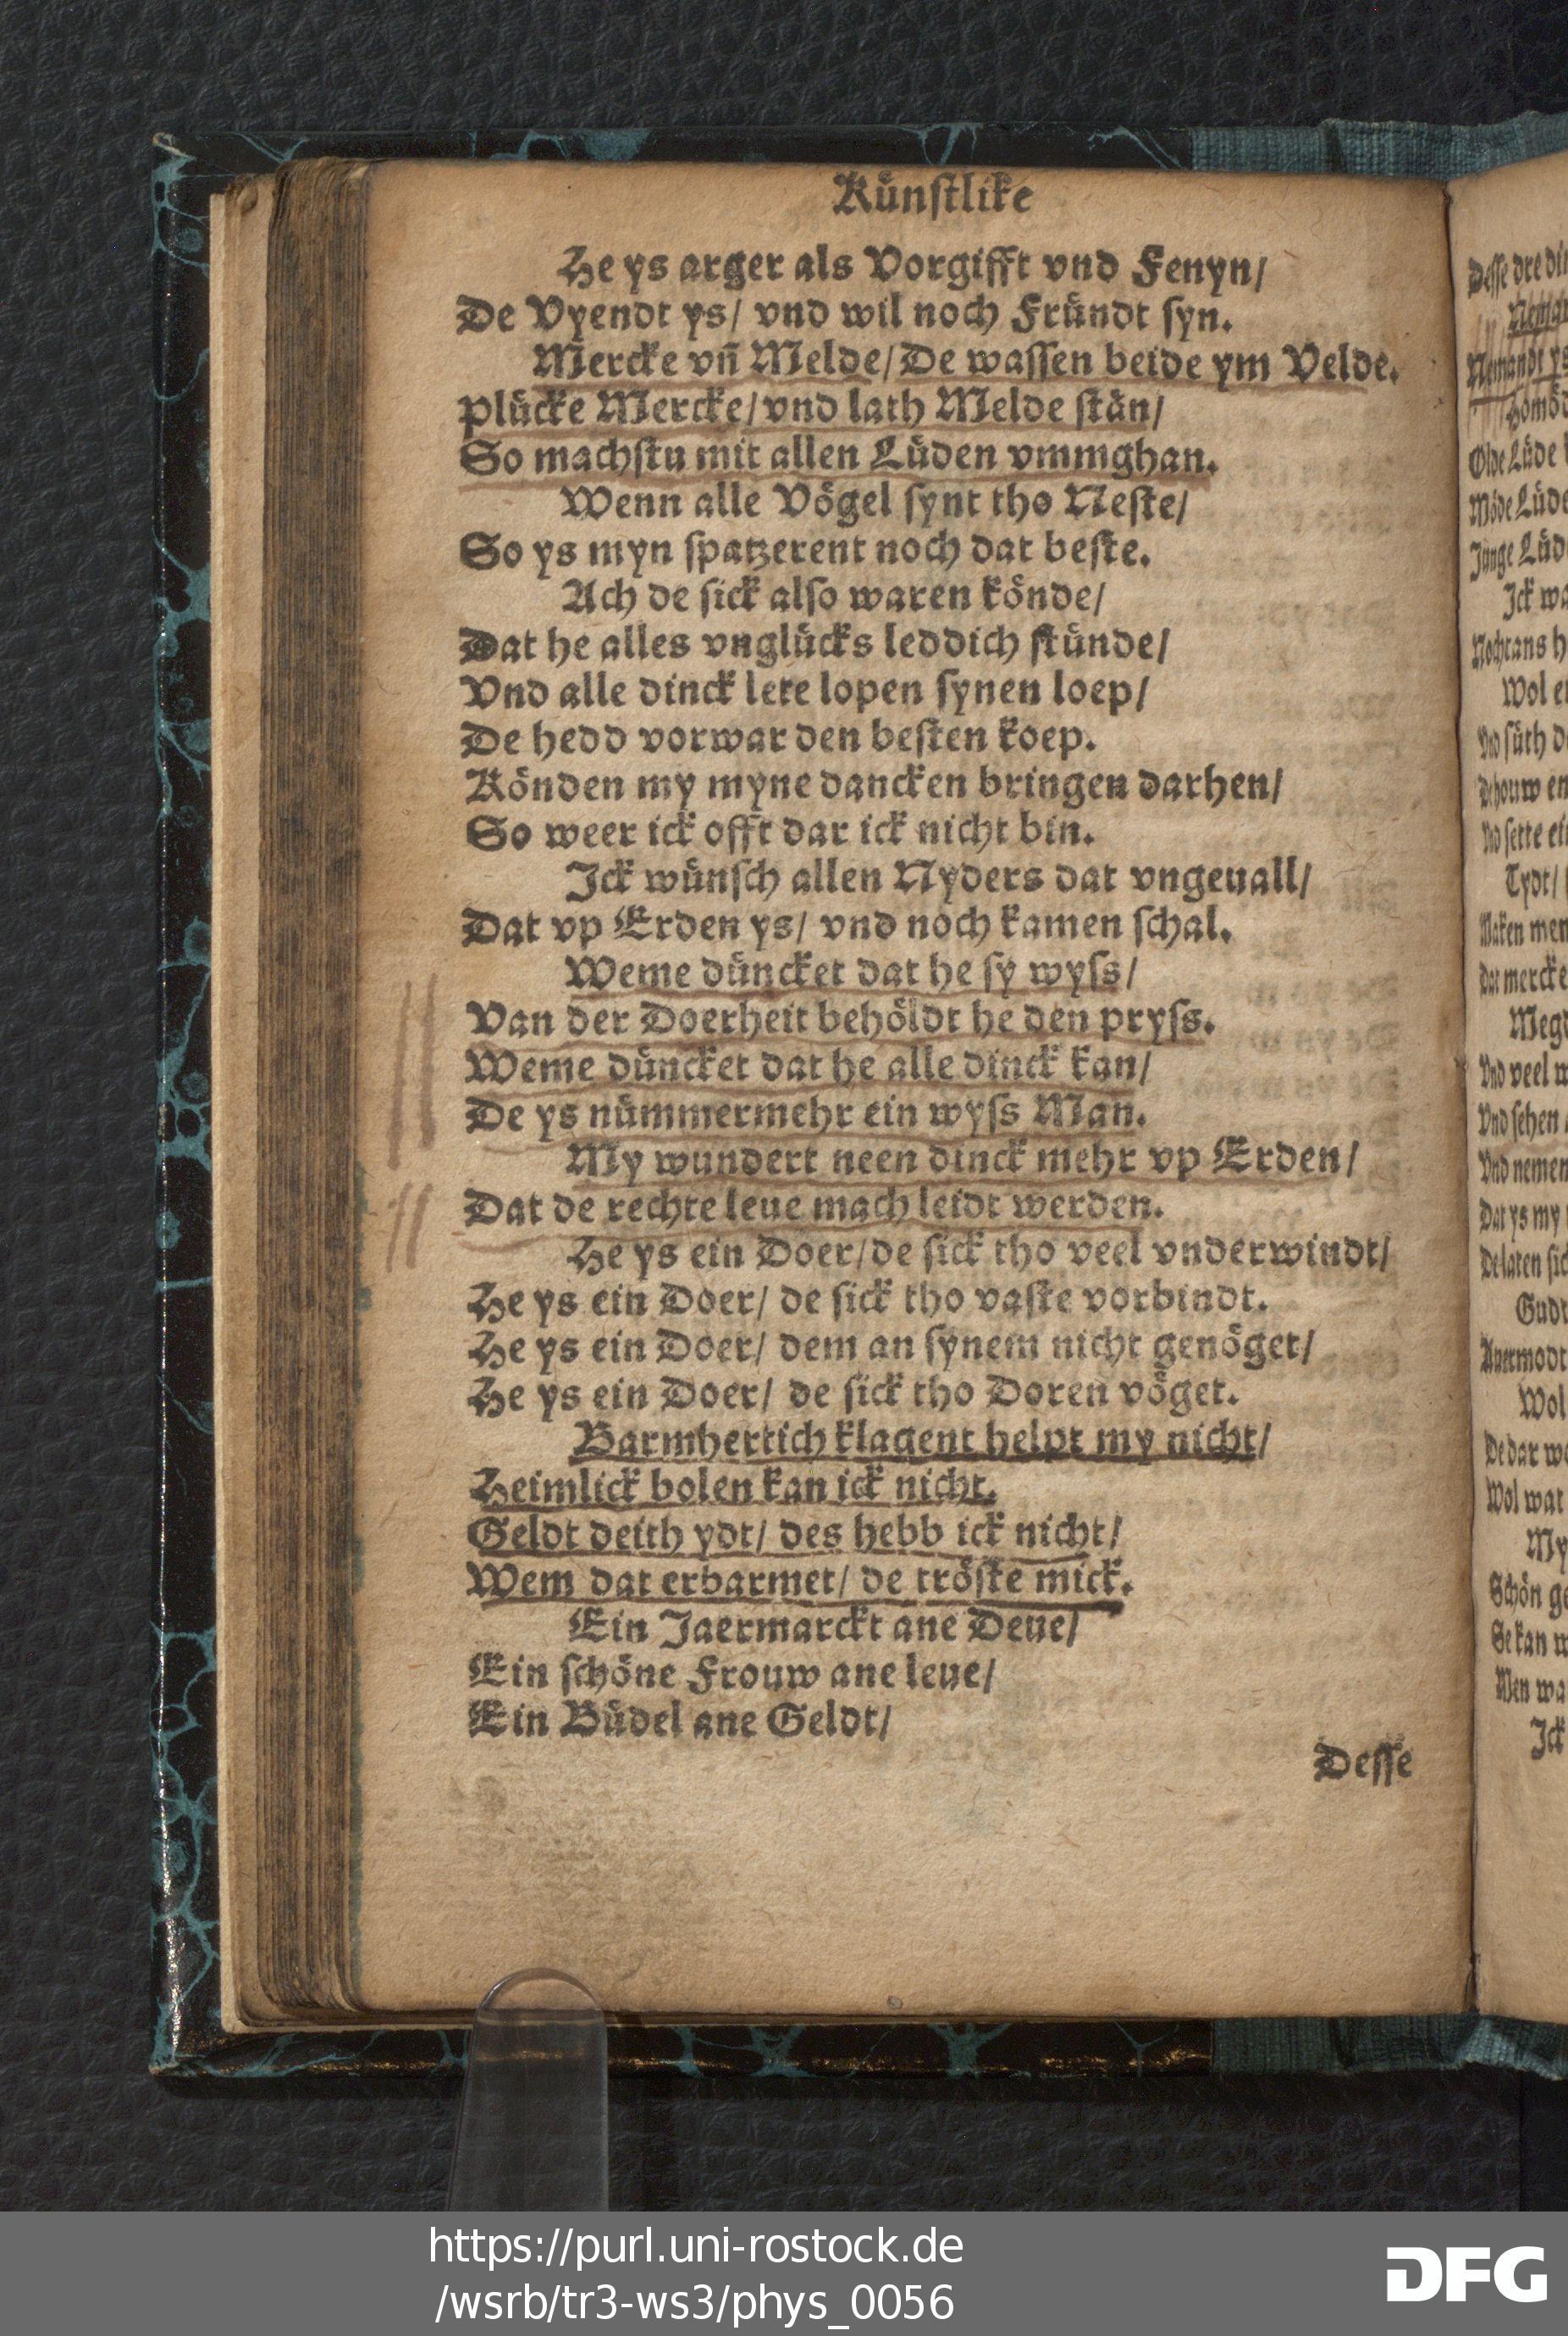 Künstlike
He ys arger als Vorgifft vnd Fenyn/
De Vyendt ys/ vnd wil noch Fründt syn.
Mercke vn̄ Melde/ De wassen beide ym Velde.
Plücke Mercke/ vnd lath Melde stän/
So machstu mit allen Lüden vmmghan.
Wenn alle Vögel synt tho Neste/
So ys myn spatzerent noch dat beste.
Ach de sick also waren könde/
Dat he alles vnglücks leddich stünde/
Vnd alle dinck lete lopen synen loep/
De hedd vorwar den besten koep.
Könden my myne dancken bringen darhen/
So weer ick offt dar ick nicht bin.
Ick wünsch allen Nyders dat vngeuall/
Dat vp Erden ys/ vnd noch kamen schal.
Weme düncket dat he sy wyss/
Van der Doerheit behöldt he den pryss.
Weme düncket dat he alle dinck kan/
De ys nümmermehr ein wyss Man.
My wundert neen dinck mehr vp Erden/
Dat de rechte leue mach leidt werden.
He ys ein Doer/ de sick tho veel vnderwindt/
He ys ein Doer/ de sick tho vaste vorbindt.
He ys ein Doer/ dem an synem nicht genöget/
He ys ein Doer/ de sick tho Doren vöget.
Barmhertich klagent helpt my nicht/
Heimlick bolen kan ick nicht.
Geldt deith ydt/ des hebb ick nicht/
Wem dat erbarmet/ de tröste mick.
Ein Jaermarckt ane Deue/
Ein schöne Frouw ane leue/
Ein Büdel ane Geldt/
Desse
https://purl.uni-rostock.de
/wsrb/tr3-ws3/phys_0056
DFG